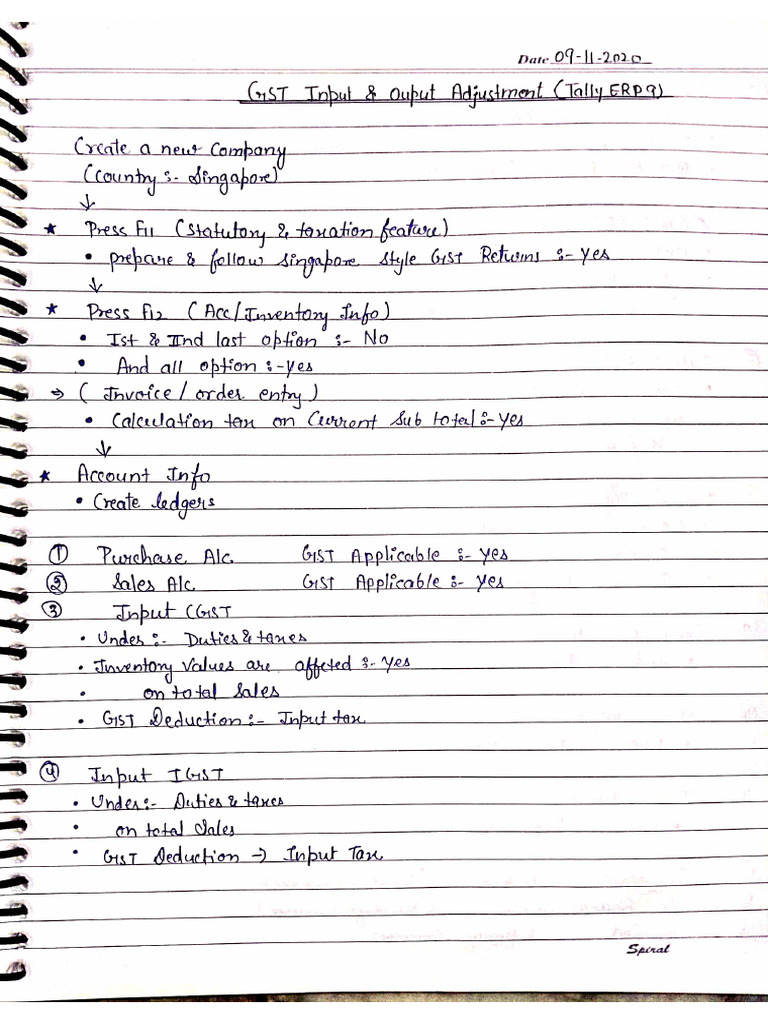 Date 09-11-2020
GST Input & Ouput Adjustment (Tally ERP 9)
Create a new Company
(Country :- Singapore)
↓
★ Press F11 (Statutory & taxation feature)
• prepare & follow Singapore Style GST Returns :- yes
↓
★ Press F12 (Acc/Inventory Info)
• Ist & IInd last option :- No
• And all option :- yes
→ (Invoice/order entry)
• Calculation tax on Current Sub total :- yes
↓
★ Account Info
• Create ledgers
① Purchase A/c GST Applicable :- yes
② Sales A/c GST Applicable :- yes
③ Input CGST
• Under :- Duties & taxes
• Inventory Values are affected :- yes
• on total sales
• GST Deduction :- Input tax
④ Input IGST
• Under :- Duties & taxes
• on total Sales
• GST Deduction → Input Tax
Spiral